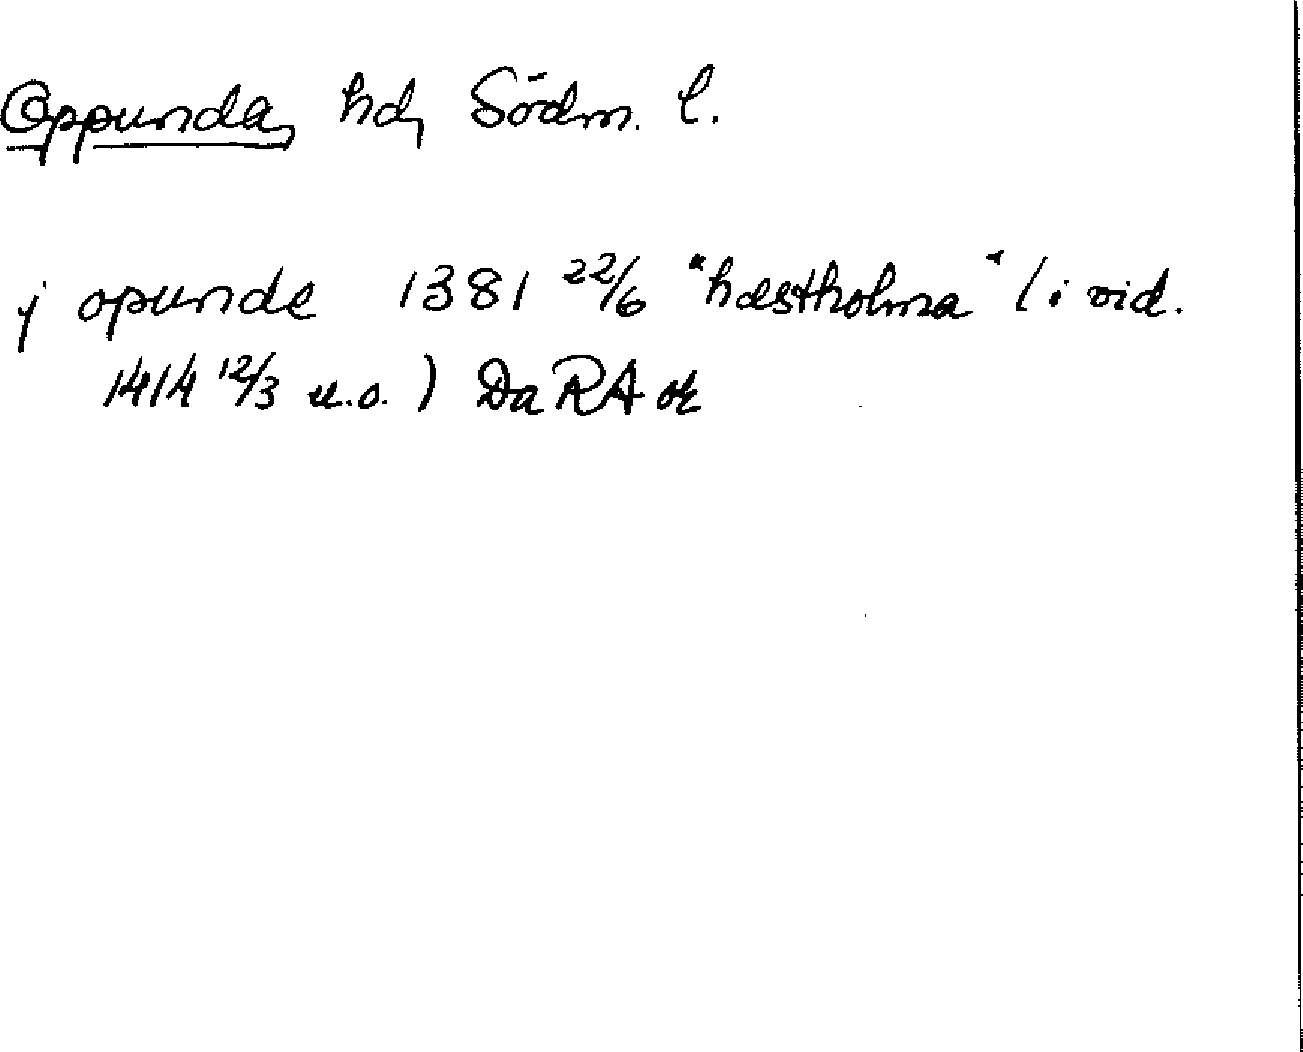 Oppunda, hd, Södm. l.
j opunde 1381 22/6 "hæstholma" (i vid.
1414 12/3 u.o.) Da RA ok